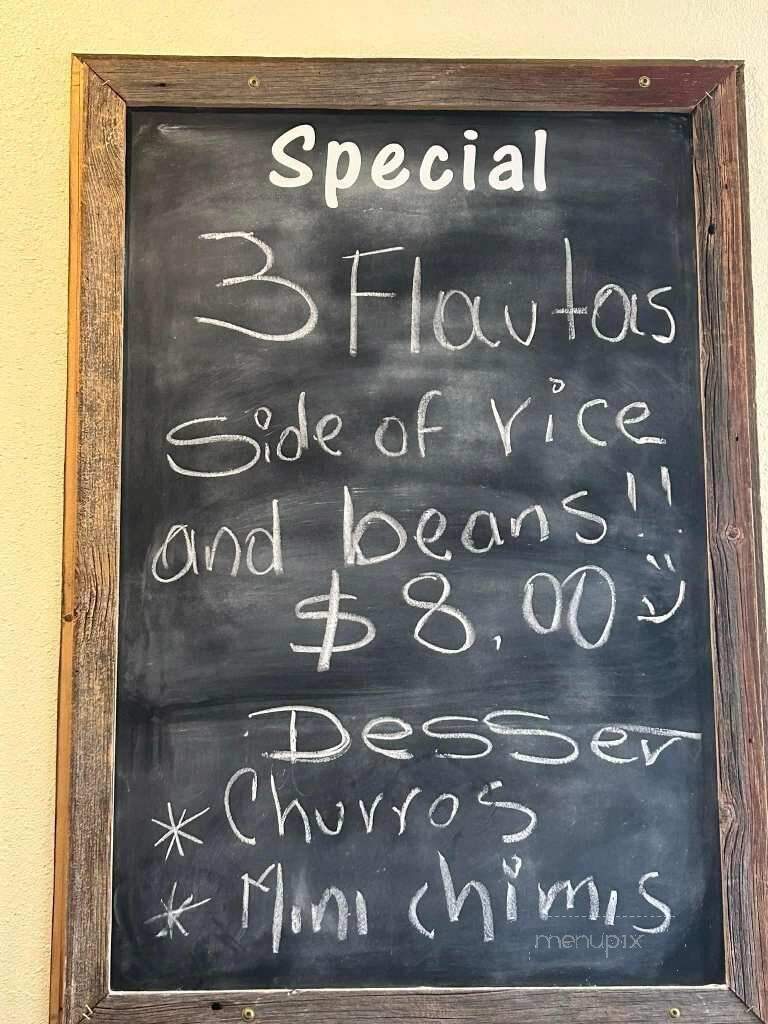 Special
3 Flautas
Side of rice
and beans!!
$8.00 :)
Desser
* Churros
* Mini chimis
menupix